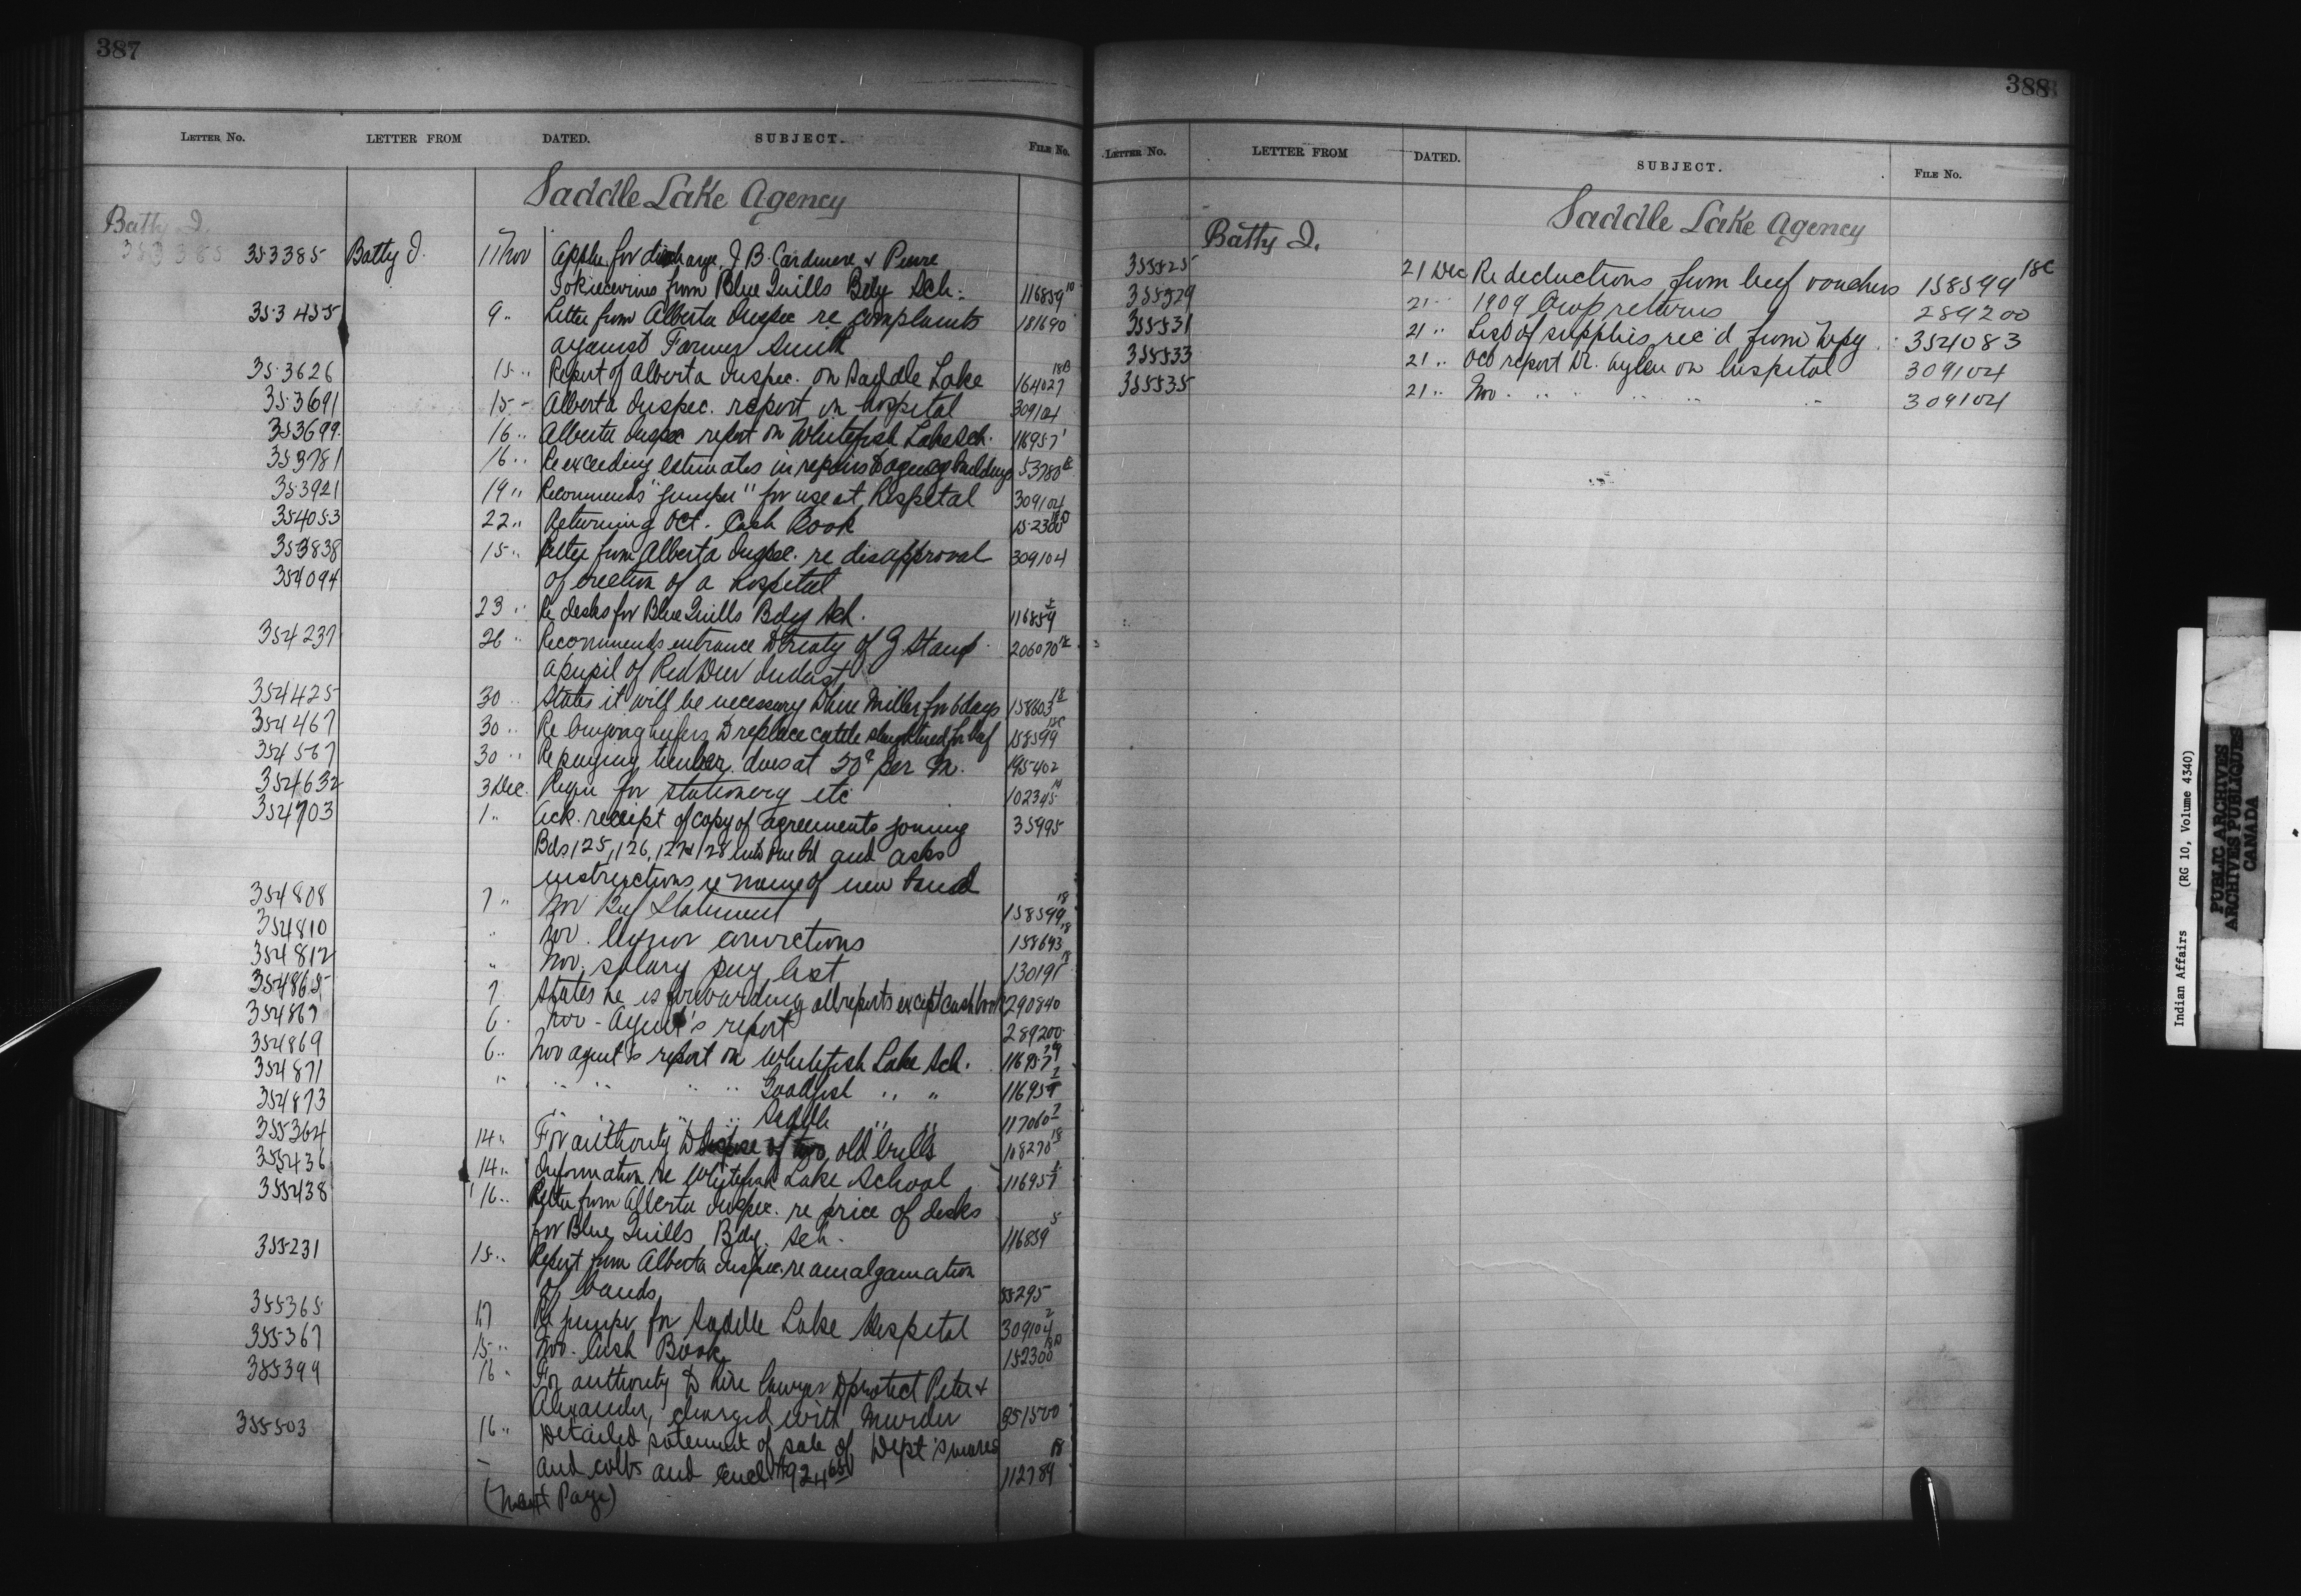 387
LETTER NO. LETTER FROM DATED. SUBJECT. FILE No.
Saddle Lake Agency
Batty J.
353385 353385 Batty J. 11 Nov Applic for discharge, J. B. Cardinere & Pierre
from Blue Quills Bdg Sch. 116859 10
353455 9 " Letter from Alberta Inspec re complaints 181690
against Farmer Smith
353626 15 " Report of Alberta Inspec. on Saddle Lake 164027 18B
353691 15 " Alberta Inspec. report on hospital 309104
353699 16 " Alberta Inspec report on Whitefish Lake Sch. 116957 1
353781 16 " Re exceeding estimates in repairs to agency buildings 53780
353921 19 " Recommends "jumper" for use at Hospital 309104
354053 22 " Returning Oct. Cash Book 152300 18D
353838 15 " Letter from Alberta Inspec. re disapproval 309104
354094 of erection of a hospital
23 " Re desks for Blue Quills Bdg Sch. 116859
354237 26 " Recommends entrance to Treaty of G Stamp 206070
a pupil of Red Deer Indust
354425 30 " States it will be necessary to hire Miller for 6 days 158603 18
354467 30 " Re buying heifers to replace cattle slaughtered for beef 158599 18C
354567 30 " Re paying timber dues at 50c per M. 195402
354632 3 Dec. Requi for stationery etc 102345
354703 1 " Ack. receipt of copy of agreements joining 35995
Bds 125, 126, 127 & 128 into one bd and asks
instructions re name of new band
354808 7 " Nov Beef Statement 158599 18
354810 " Nov. liquor convictions 158693 18
354812 " Nov. salary pay list 130191 18
354865 7 States he is forwarding all reports except cash book 290840
354867 6 " Nov - Agent's report 289200
354869 6 " Nov agent's report on Whitefish Lake Sch. 116957
354871 " " " " " Goodfish " " 116958
354873 " " " " Saddle " " 117060 2
355364 14 " For authority to dispose of two old bulls 108270 18
355436 14 " Information re Whitefish Lake School 116957
355438 16 " Letter from Alberta Inspec. re price of desks
for Blue Quills Bdg. Sch. 116859 5
355231 15 " Report from Alberta Inspec. re amalgamation
of bands 55295
355365 17 Re jumper for Saddle Lake Hospital 309104 2
355367 15 " Nov. Cash Book 152300 18D
355399 16 " For authority to hire lawyer to protect Peter &
Alexander, charged with Murder 351500
355503 16 " Detailed statement of sale of Dept's mares
and colts and encl $924 112789 18
(Next Page)
388
LETTER NO. LETTER FROM DATED. SUBJECT. FILE No.
Saddle Lake Agency
Batty J.
355525 21 Dec Re deductions from beef vouchers 158599 18C
355529 21 " 1909 Crop returns 289200
355531 21 " List of supplies rec'd from Wpg 354083
355533 21 " Oct report Dr. Aylen on hospital 309104
355535 21 " Nov. " " " " " 309104
Indian Affairs (RG 10, Volume 4340)
PUBLIC ARCHIVES
ARCHIVES PUBLIQUES
CANADA